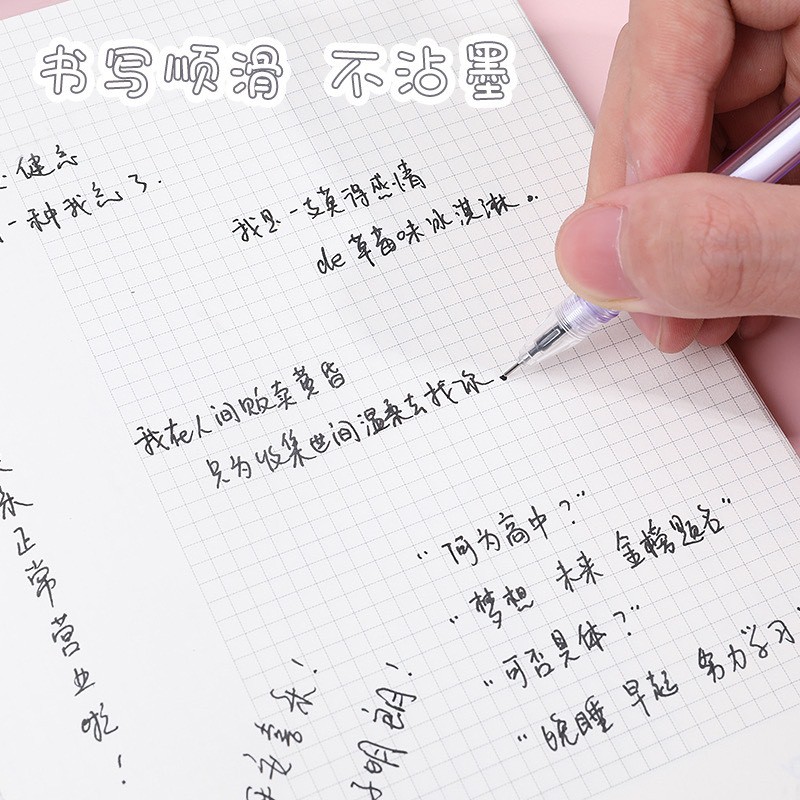 书写顺滑 不沾墨
健忘
一种我忘了.
我是一支莫得感情
de草莓味冰淇淋。
我在人间贩卖黄昏
只为收集世间温柔去找你
“何为高中？”
“梦想 未来 金榜题名”
“可否具体？”
“晚睡 早起 努力“学习”
正常营业啦！